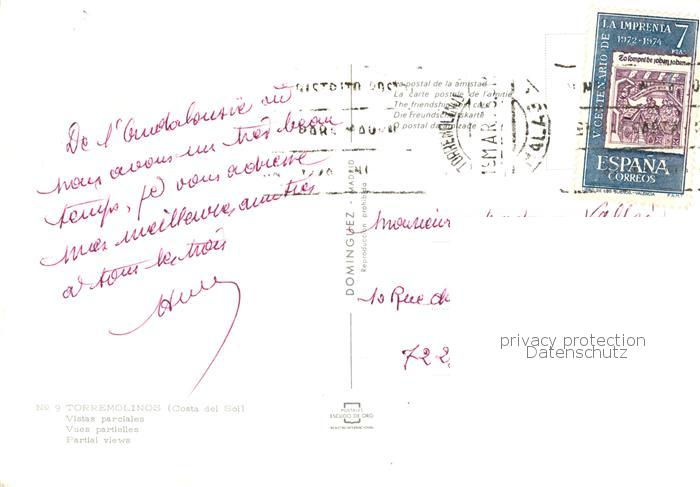 De l'Andalousie où
nous avons un très beau
temps, je vous adresse
mes meilleures amitiés
à tous les trois
Nº 9 TORREMOLINOS (Costa del Sol)
Vistas parciales
Vues partielles
Partial views
DOMINGUEZ - MADRID
Reproducción prohibida
La postal de la amistad
La carte postale de l'amitié
The friendship post card
Die Freundschaftskarte
POSTALES
ESCUDO DE ORO
TORREMOLINOS
MAR
MALAGA
V CENTENARIO DE LA IMPRENTA
1972-1974
7
PTAS
ESPAÑA
CORREOS
Monsieur
10 Rue de
722
privacy protection
Datenschutz